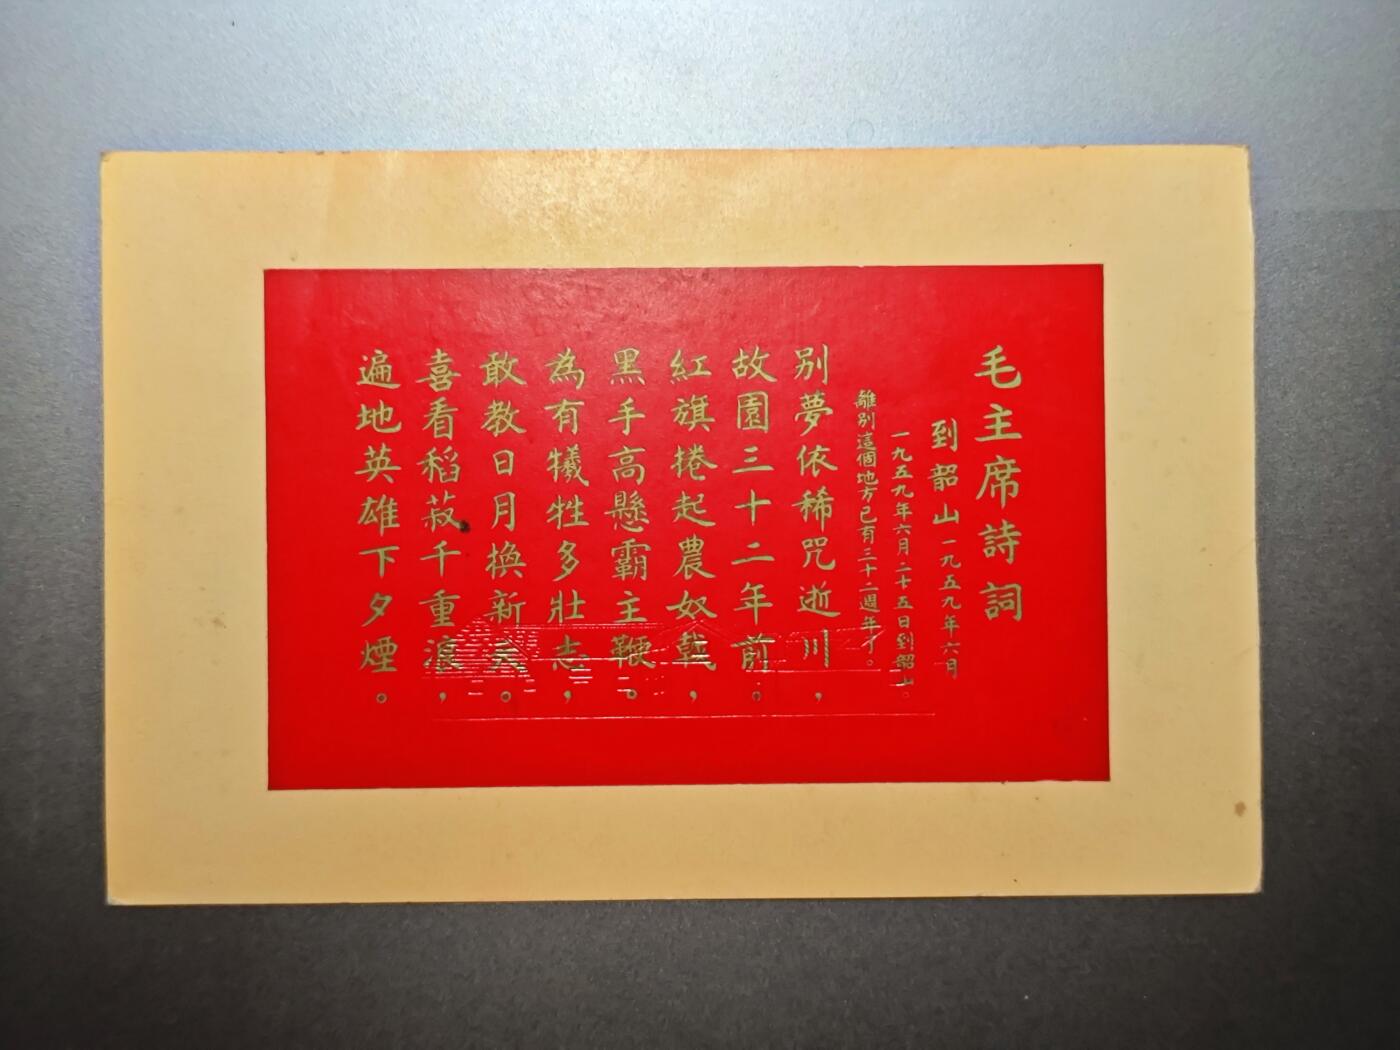 毛主席詩詞
到韶山一九五九年六月
一九五九年六月二十五日到韶山。
離別這個地方已有三十二週年了。
別夢依稀咒逝川，
故園三十二年前。
紅旗捲起農奴戟，
黑手高懸霸主鞭。
為有犧牲多壯志，
敢教日月換新天。
喜看稻菽千重浪，
遍地英雄下夕煙。